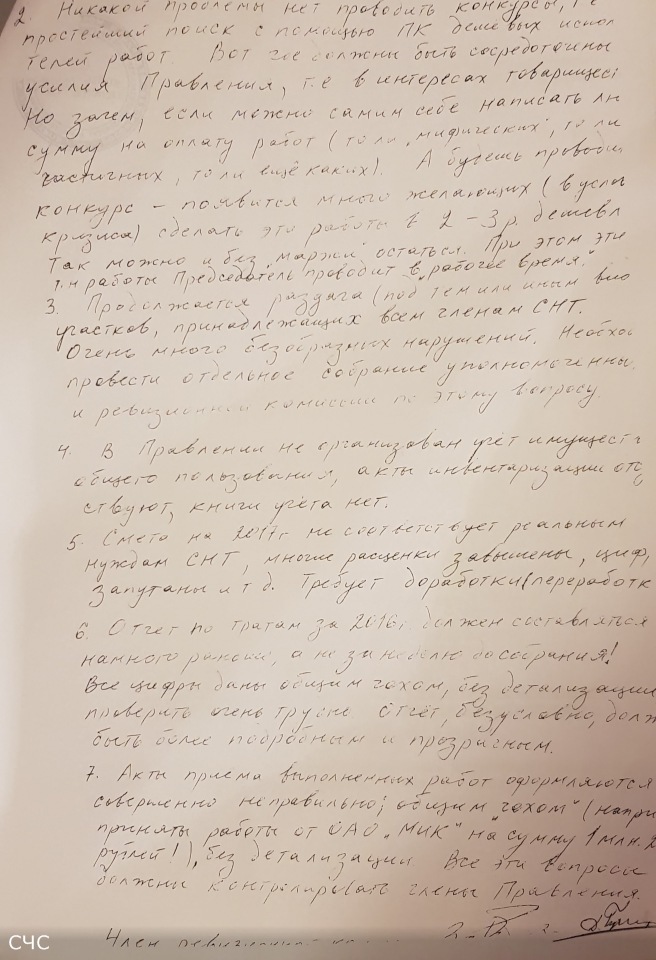 2. Никакой проблемы нет проводить конкурсы, т.е
простейший поиск с помощью ПК дешевых испол
телей работ. Вот где должны быть сосредоточены
усилия Правления, т.е в интересах товарищес
Но зачем, если можно самим себе написать лю
сумму на оплату работ (то ли „мифических", то ли
частичных, то ли ещё каких). А будешь проводи
конкурс – появится много желающих (в усло
кризиса) сделать эти работы в 2-3 р. дешевл
Так можно и без „маржи" остаться. При этом эти
работы Председатель проводит в „рабочее время".
3. Продолжается раздача (под тем или иным вид
участков, принадлежащих всем членам СНТ.
Очень много безобразных нарушений. Необхо
провести отдельное собрание уполномоченны
и ревизионной комиссии по этому вопросу.
4. В Правлении не организован учёт имуществ
общего пользования, акты инвентаризации отс
ствуют, книги учёта нет.
5. Смета на 2017г не соответствует реальным
нуждам СНТ, многие расценки завышены, циф
запутаны и т д. Требует доработки (переработк
6. Отчет по тратам за 2016г должен составляться
намного раньше, а не за неделю до собрания!
Все цифры даны общим чохом, без детализации
проверить очень трудно. Отчёт, безусловно, долж
быть более подробным и прозрачным.
7. Акты приема выполненных работ оформляются
совершенно неправильно; общим „чохом" (напри
приняты работы от ОАО „МИК" на сумму 1 млн. 2
рублей!), без детализации. Все эти вопросы
должны контролировать члены Правления.
Член
СЧС